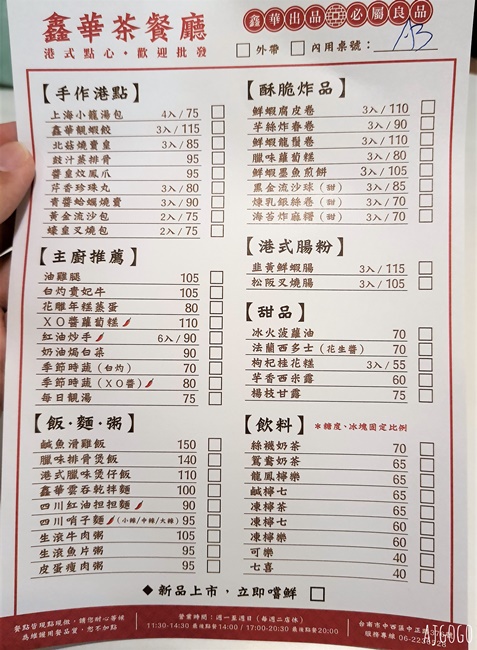 鑫華茶餐廳
港式點心·歡迎批發
鑫華出品 必屬良品
外帶 內用桌號: A3
【手作港點】
上海小籠湯包 4入/75
鑫華靚蝦餃 3入/115
北菇燒賣皇 3入/85
豉汁蒸排骨 95
醬皇炆鳳爪 95
芹香珍珠丸 3入/80
青醬蛤蠣燒賣 3入/90
黃金流沙包 2入/75
蠔皇叉燒包 2入/75
【主廚推薦】
油雞腿 105
白灼貴妃牛 105
花雕年糕蒸蛋 80
XO醬蘿蔔糕 110
紅油炒手 6入/90
奶油焗白菜 90
季節時蔬(白灼) 70
季節時蔬(XO醬) 80
每日靚湯 75
【飯·麵·粥】
鹹魚滑雞飯 150
臘味排骨煲飯 140
港式臘味煲仔飯 110
鑫華雲吞乾拌麵 100
四川紅油担担麵 90
四川哨子麵(小辣/中辣/大辣) 95
生滾牛肉粥 105
生滾魚片粥 95
皮蛋瘦肉粥 95
【酥脆炸品】
鮮蝦腐皮卷 3入/110
芋絲炸春卷 3入/90
鮮蝦龍鬚卷 3入/110
臘味蘿蔔糕 3入/80
鮮蝦墨魚煎餅 3入/105
黑金流沙球(甜) 3入/85
煉乳銀絲卷(甜) 3入/70
海苔炸麻糬(甜) 3入/70
【港式腸粉】
韭黃鮮蝦腸 3入/115
松阪叉燒腸 3入/105
【甜品】
冰火菠蘿油 70
法蘭西多士(花生醬) 70
枸杞桂花糕 3入/55
芋香西米露 60
楊枝甘露 75
【飲料】 *糖度、冰塊固定比例
絲襪奶茶 70
鴛鴦奶茶 65
龍鳳檸樂 65
鹹檸七 65
凍檸茶 65
凍檸七 60
凍檸樂 60
可樂 40
七喜 40
◆新品上市,立即嚐鮮
餐點皆現點現做,請您耐心等候
為維護用餐品質,恕不加點
營業時間:週一至週日(每週二店休)
11:30-14:30 最後點餐14:00 / 17:00-20:30 最後點餐20:00
台南市中西區中正路
服務專線 06-22
AIGOGO